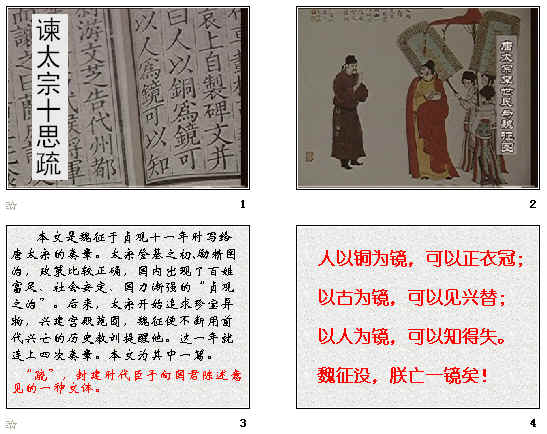 谏太宗十思疏
哀上自製碑文并
曰人以銅為鏡可
以人為鏡可以知
1
唐太宗李世民与魏征图
2
本文是魏征于贞观十一年时写给
唐太宗的奏章。太宗登基之初,励精图
治，政策比较正确，国内出现了百姓
富足、社会安定、国力渐强的“贞观
之治”。后来，太宗开始追求珍宝异
物，兴建宫殿苑囿，魏征便不断用前
代兴亡的历史教训提醒他。这一年就
连上四次奏章。本文为其中一篇。
“疏”，封建时代臣下向国君陈述意
见的一种文体。
3
人以铜为镜，可以正衣冠；
以古为镜，可以见兴替；
以人为镜，可以知得失。
魏征没，朕亡一镜矣！
4